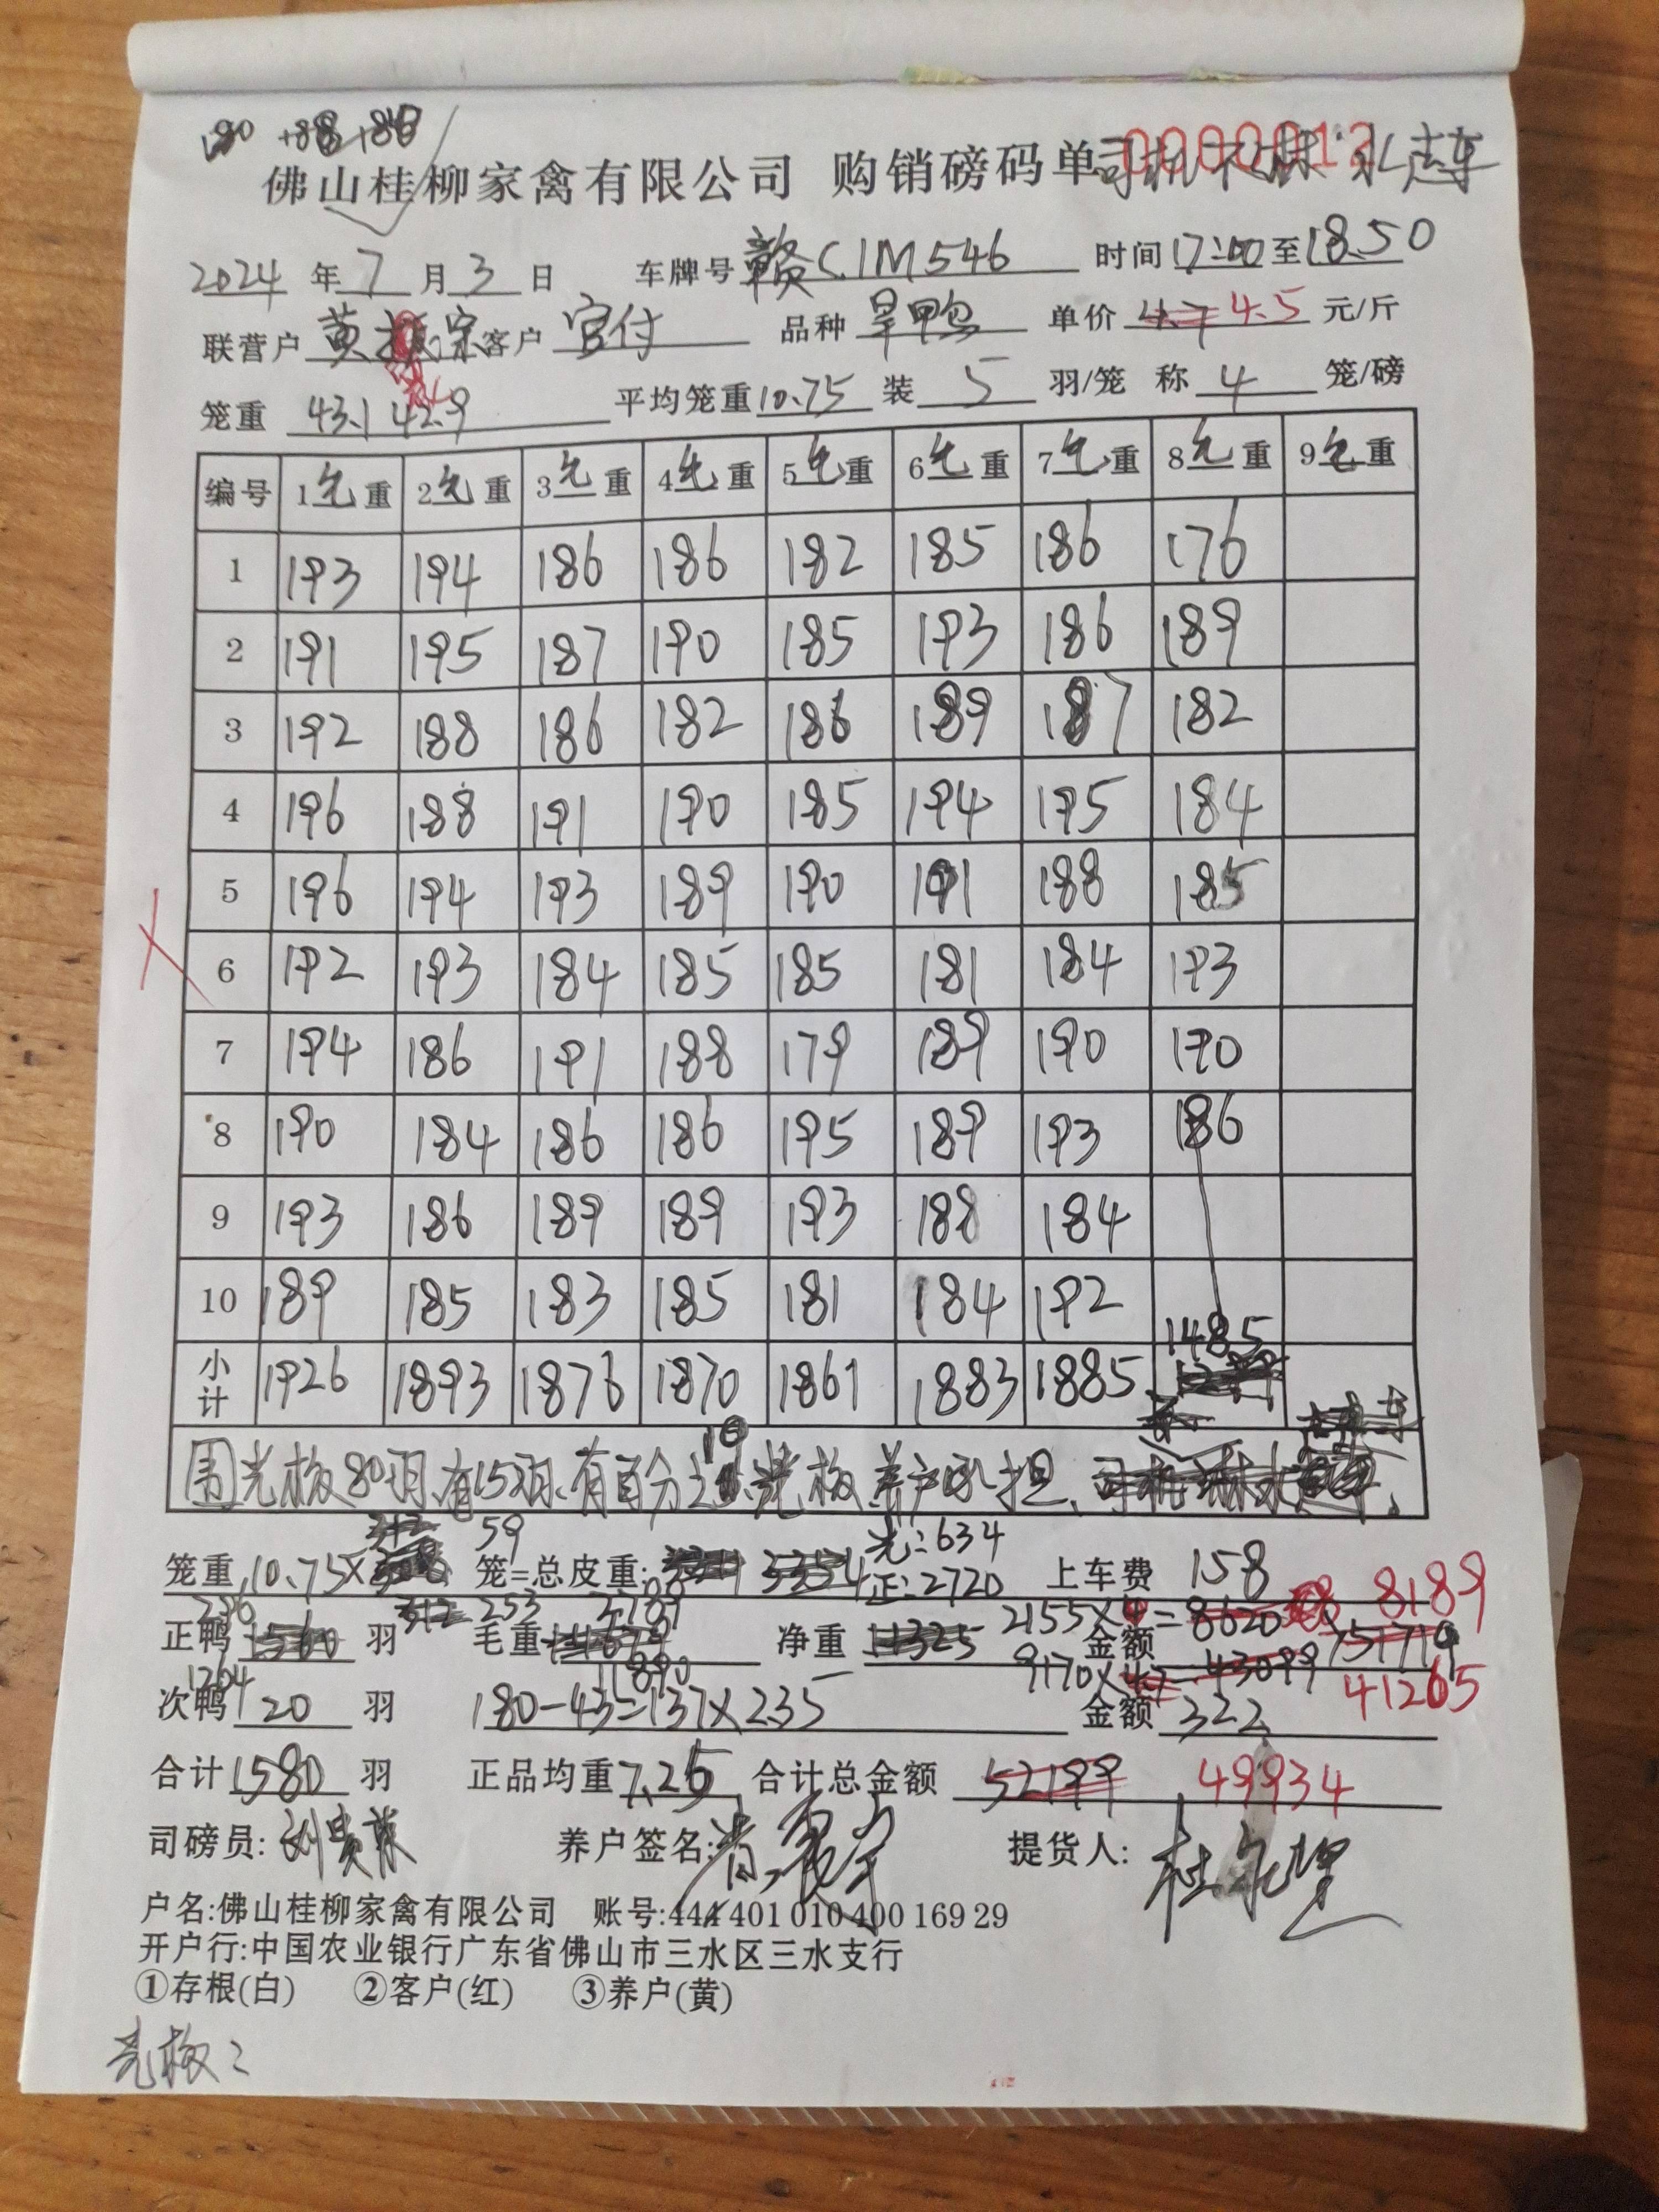 180 +88 +88
佛山桂柳家禽有限公司 购销磅码单 0000012
2024 年 7 月 3 日 车牌号 赣C1M546 时间 17:00 至 18.50
联营户 黄振宗 客户 官付 品种 旱鸭 单价 4.7 4.5 元/斤
笼重 43.1 42.9 平均笼重 10.75 装 5 羽/笼 称 4 笼/磅
编号 1毛重 2毛重 3毛重 4毛重 5毛重 6毛重 7毛重 8毛重 9毛重
1 193 194 186 186 182 185 186 176
2 191 195 187 190 185 193 186 189
3 192 188 186 182 186 189 187 182
4 196 188 191 190 185 194 195 184
5 196 194 193 189 190 191 188 185
6 192 193 184 185 185 181 184 193
7 194 186 191 188 179 189 190 190
8 190 184 186 186 195 189 193 186
9 193 186 189 189 193 188 184
10 189 185 183 185 181 184 192
1485
小计 1926 1893 1876 1870 1861 1883 1885
围光板80羽、有15羽、有百分之10光板养户承担、
312 59 光:634
笼重 10.75× 笼=总皮重: 3354 正:2720 上车费 158
236 312 253 2789 2155×4=8620 8189
正鸭 1560 羽 毛重 14679 净重 11325 金额 51719
1264 11890 9170×4.7=43099 41265
次鸭 20 羽 180-43=137×2.35 金额 322
合计 1580 羽 正品均重 7.25 合计总金额 52199 49934
司磅员: 刘贵荣 养户签名: 提货人:
户名:佛山桂柳家禽有限公司 账号:444 401 010 400 169 29
开户行:中国农业银行广东省佛山市三水区三水支行
①存根(白) ②客户(红) ③养户(黄)